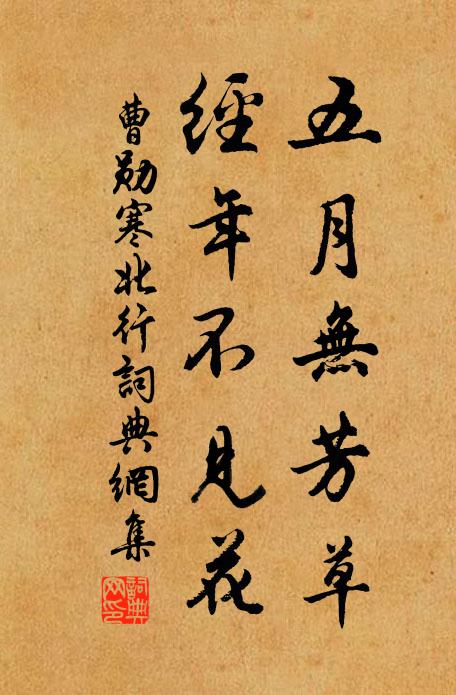 五月無芳草
經年不見花
曹勛寒北行詞典網集
詞典
网印